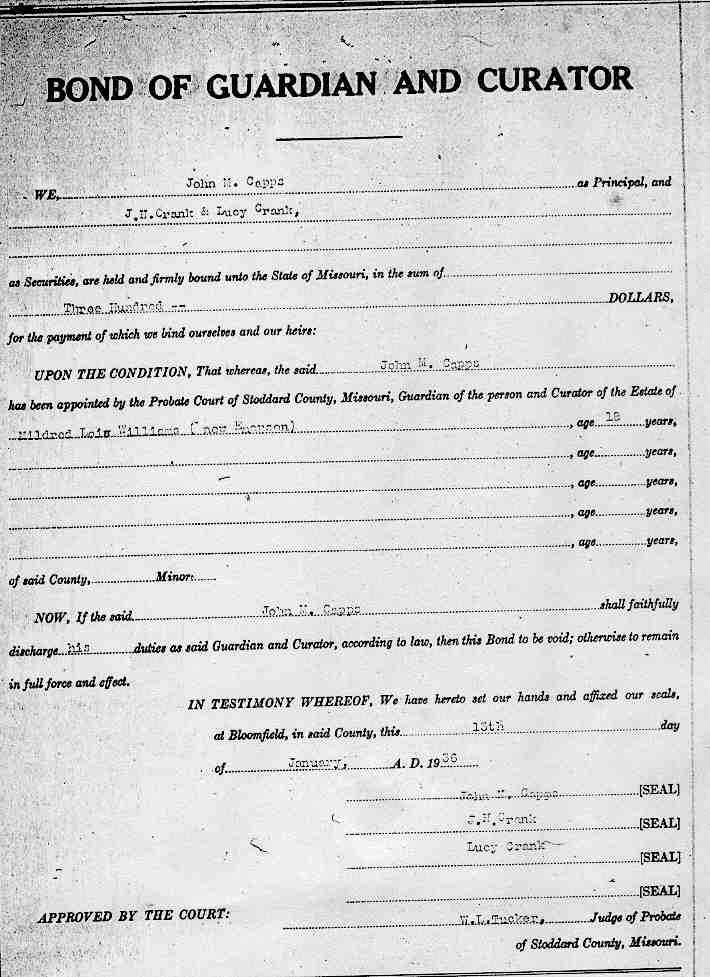 BOND OF GUARDIAN AND CURATOR
WE, John M. Capps as Principal, and
J.H.Crank & Lucy Crank,
as Securities, are held and firmly bound unto the State of Missouri, in the sum of
Three Hundred -- DOLLARS,
for the payment of which we bind ourselves and our heirs:
UPON THE CONDITION, That whereas, the said John M. Capps
has been appointed by the Probate Court of Stoddard County, Missouri, Guardian of the person and Curator of the Estate of
Mildred Lois Williams (now , age 18 years,
, age years,
, age years,
, age years,
, age years,
of said County, Minor:
NOW, If the said John M. Capps shall faithfully
discharge his duties as said Guardian and Curator, according to law, then this Bond to be void; otherwise to remain
in full force and effect.
IN TESTIMONY WHEREOF, We have hereto set our hands and affixed our seals,
at Bloomfield, in said County, this 13th day
of January, A. D. 1936
John M. Capps [SEAL]
J.H.Crank [SEAL]
Lucy Crank [SEAL]
[SEAL]
APPROVED BY THE COURT: W.L.Tucker, Judge of Probate
of Stoddard County, Missouri.